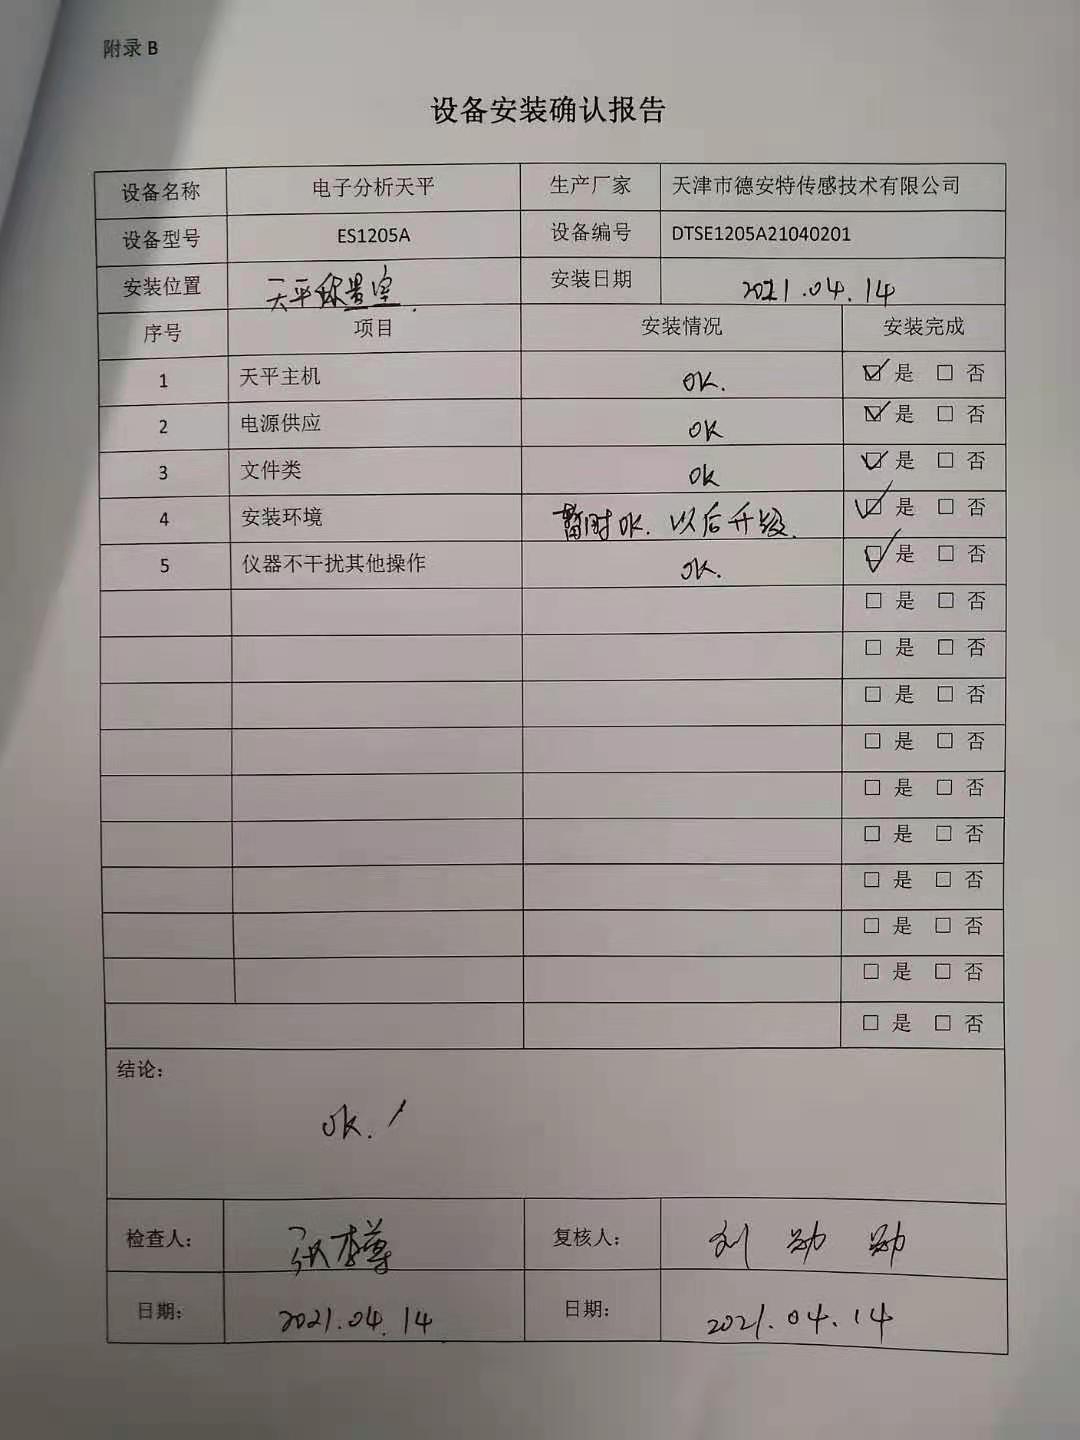 附录 B
设备安装确认报告
设备名称 电子分析天平 生产厂家 天津市德安特传感技术有限公司
设备型号 ES1205A 设备编号 DTSE1205A21040201
安装位置 天平称量室. 安装日期 2021.04.14
序号 项目 安装情况 安装完成
1 天平主机 OK. ☑ 是 □ 否
2 电源供应 OK ☑ 是 □ 否
3 文件类 OK ☑ 是 □ 否
4 安装环境 暂时OK. 以后升级. ☑ 是 □ 否
5 仪器不干扰其他操作 OK. ☑ 是 □ 否
□ 是 □ 否
□ 是 □ 否
□ 是 □ 否
□ 是 □ 否
□ 是 □ 否
□ 是 □ 否
□ 是 □ 否
□ 是 □ 否
□ 是 □ 否
□ 是 □ 否
结论：
OK.
检查人： 复核人： 刘勋勋
日期： 2021.04.14 日期： 2021.04.14